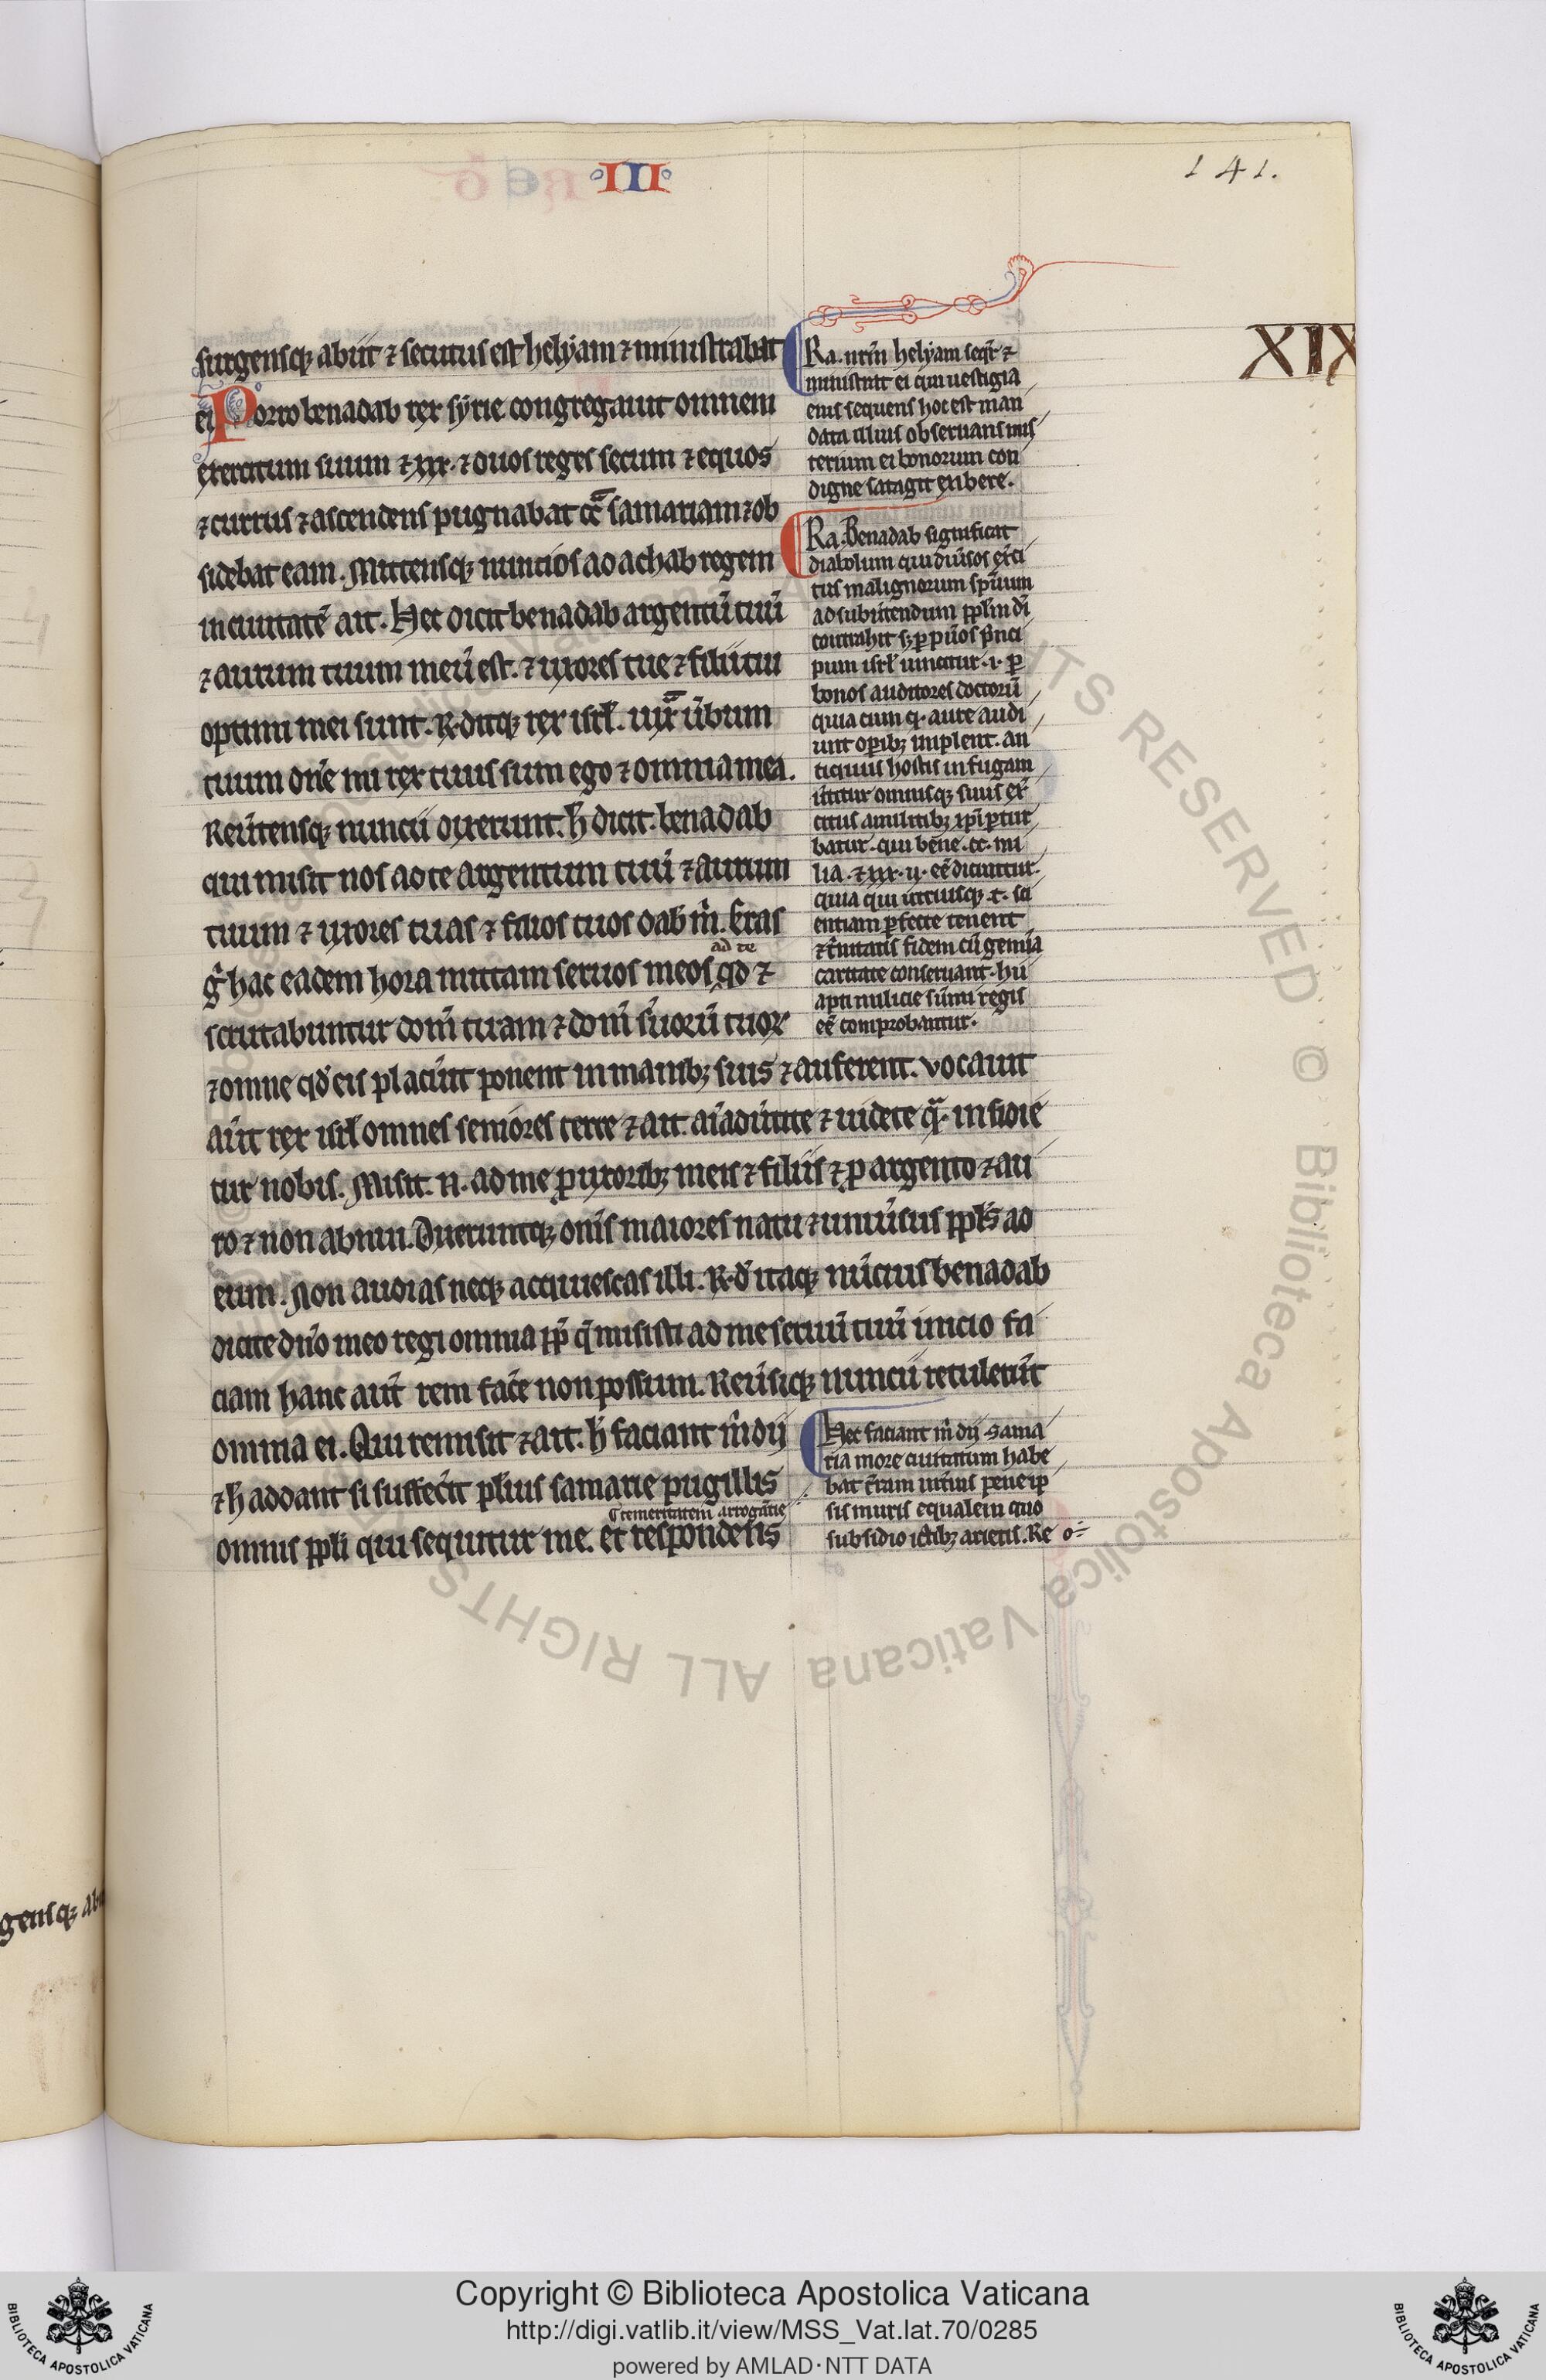 ·III·
141.
XIX
surgensq; abiit ⁊ secutus est helyam ⁊ ministrabat
ei Porro benadab rex syrie congregauit omnem
exercitum suum ⁊ xxx· ⁊ duos reges secum ⁊ equos
⁊ currus ⁊ ascendens pugnabat ct̄ samariam ⁊ ob
sidebat eam. Mittensq; nuncios ad achab regem
in ciuitatē ait. Hec dicit benadab argentū tuū
⁊ aurum tuum meū est. ⁊ uxores tue ⁊ filii tui
optimi mei sunt. R̄ditq; rex isrl̄. iux̄ ūbum
tuum dn̄e mi rex tuus sum ego ⁊ omnia mea.
Reūtensq; nuncii dixerunt. h̄ dicit. benadab
qui misit nos ad te argentum tuū ⁊ aurum
tuum ⁊ uxores tuas ⁊ filios tuos dab̄ m̄. Cras
ad te
gͥ hac eadem hora mittam seruos meos qd ⁊
scrutabuntur dom̄ tuam ⁊ dom̄ s̄uorū tuoꝝ
⁊ omne qd̓ eis placūit ponent in manib; suis ⁊ auferent. Vocauit
aūt rex isrl̄ omnes seniores terre ⁊ ait. aīaduertite ⁊ uidete qm̄ insidie
tur nobis. Misit. n. ad me ꝓ uxorib; meis ⁊ filiis ⁊ ꝓ argento ⁊ au
ro ⁊ non abnui. Dixeruntq; om̄s maiores natu ⁊ uniūsus ppl̄s ad
eum. Non audias neq; acquiescas illi. R̄·d̓ itaq; nūciis benadab
dicite dn̄o meo regi omnia pp̄ q̄ misisti ad me seruū tuū inicio fa
ciam hanc aūt rem facē non possum. Reūsiq; nuncii retulerūt
omnia ei. Qui remisit ⁊ ait. h̄ faciant m̄ dij
⁊ h̄ addant si suffecīt pl̄uis samarie pugillis
¶ temeritatem arrogātie
omnis ppl̄i qui sequitur me. et respondens
Ra. utīn helyam seqt̄ ⁊
ministrat ei qui uestigia
eius sequens hoc est man
data illius obseruans mis
terium ei bonorum con
digne satagit exibere.
Ra. Benadab significat
diabolum qui diūsos ex̄ci
tus malignorum sp̄uum
ad subūtendum ppl̄m dī
contrahit s; ꝑ pūos p̄nci
pum isrl̄ uincitur .i. ꝑ
bonos auditores doctorū
quia cum q̓ aure audi
unt oꝑib; implent. an
tiquus hostis in fugam
ūtitur omnisq; suus ex̄
citus a militib; xp̄i ꝓtur
batur. qui bene .cc. mi
lia. ⁊ xxx. ii. eē dicuntur.
quia qui utriusq; .t. sci
entiam ꝑfecte tenent
⁊ t̄nitatis fidem cū gemīa
caritate conseruant. hii
apti milicie sūmi regis
eē comprobantur.
Hec faciant m̄ dij Sama
ria more ciuitatum habe
bat t̄ram intius pene ip
sis muris equalem quo
subsidio ictib; arietis. Re o÷
gensq; ab
Copyright © Biblioteca Apostolica Vaticana
http://digi.vatlib.it/view/MSS_Vat.lat.70/0285
powered by AMLAD·NTT DATA
BIBLIOTECA APOSTOLICA VATICANA
BIBLIOTECA APOSTOLICA VATICANA
© Biblioteca Apostolica Vaticana ALL RIGHTS RESERVED